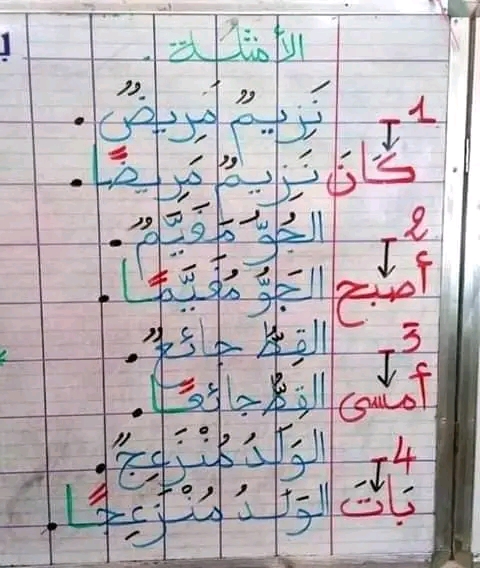 الأمثلة
1- نَزِيمٌ مَرِيضٌ.
كَانَ نَزِيمٌ مَرِيضًا.
2- الجَوُّ مُغَيَّمٌ.
أصبح الجَوُّ مُغَيَّمًا.
3- القِطُّ جائعٌ.
أمسى القِطُّ جائعًا.
4- الوَلَدُ مُنْزَعِجٌ.
بَاتَ الوَلَدُ مُنْزَعِجًا.